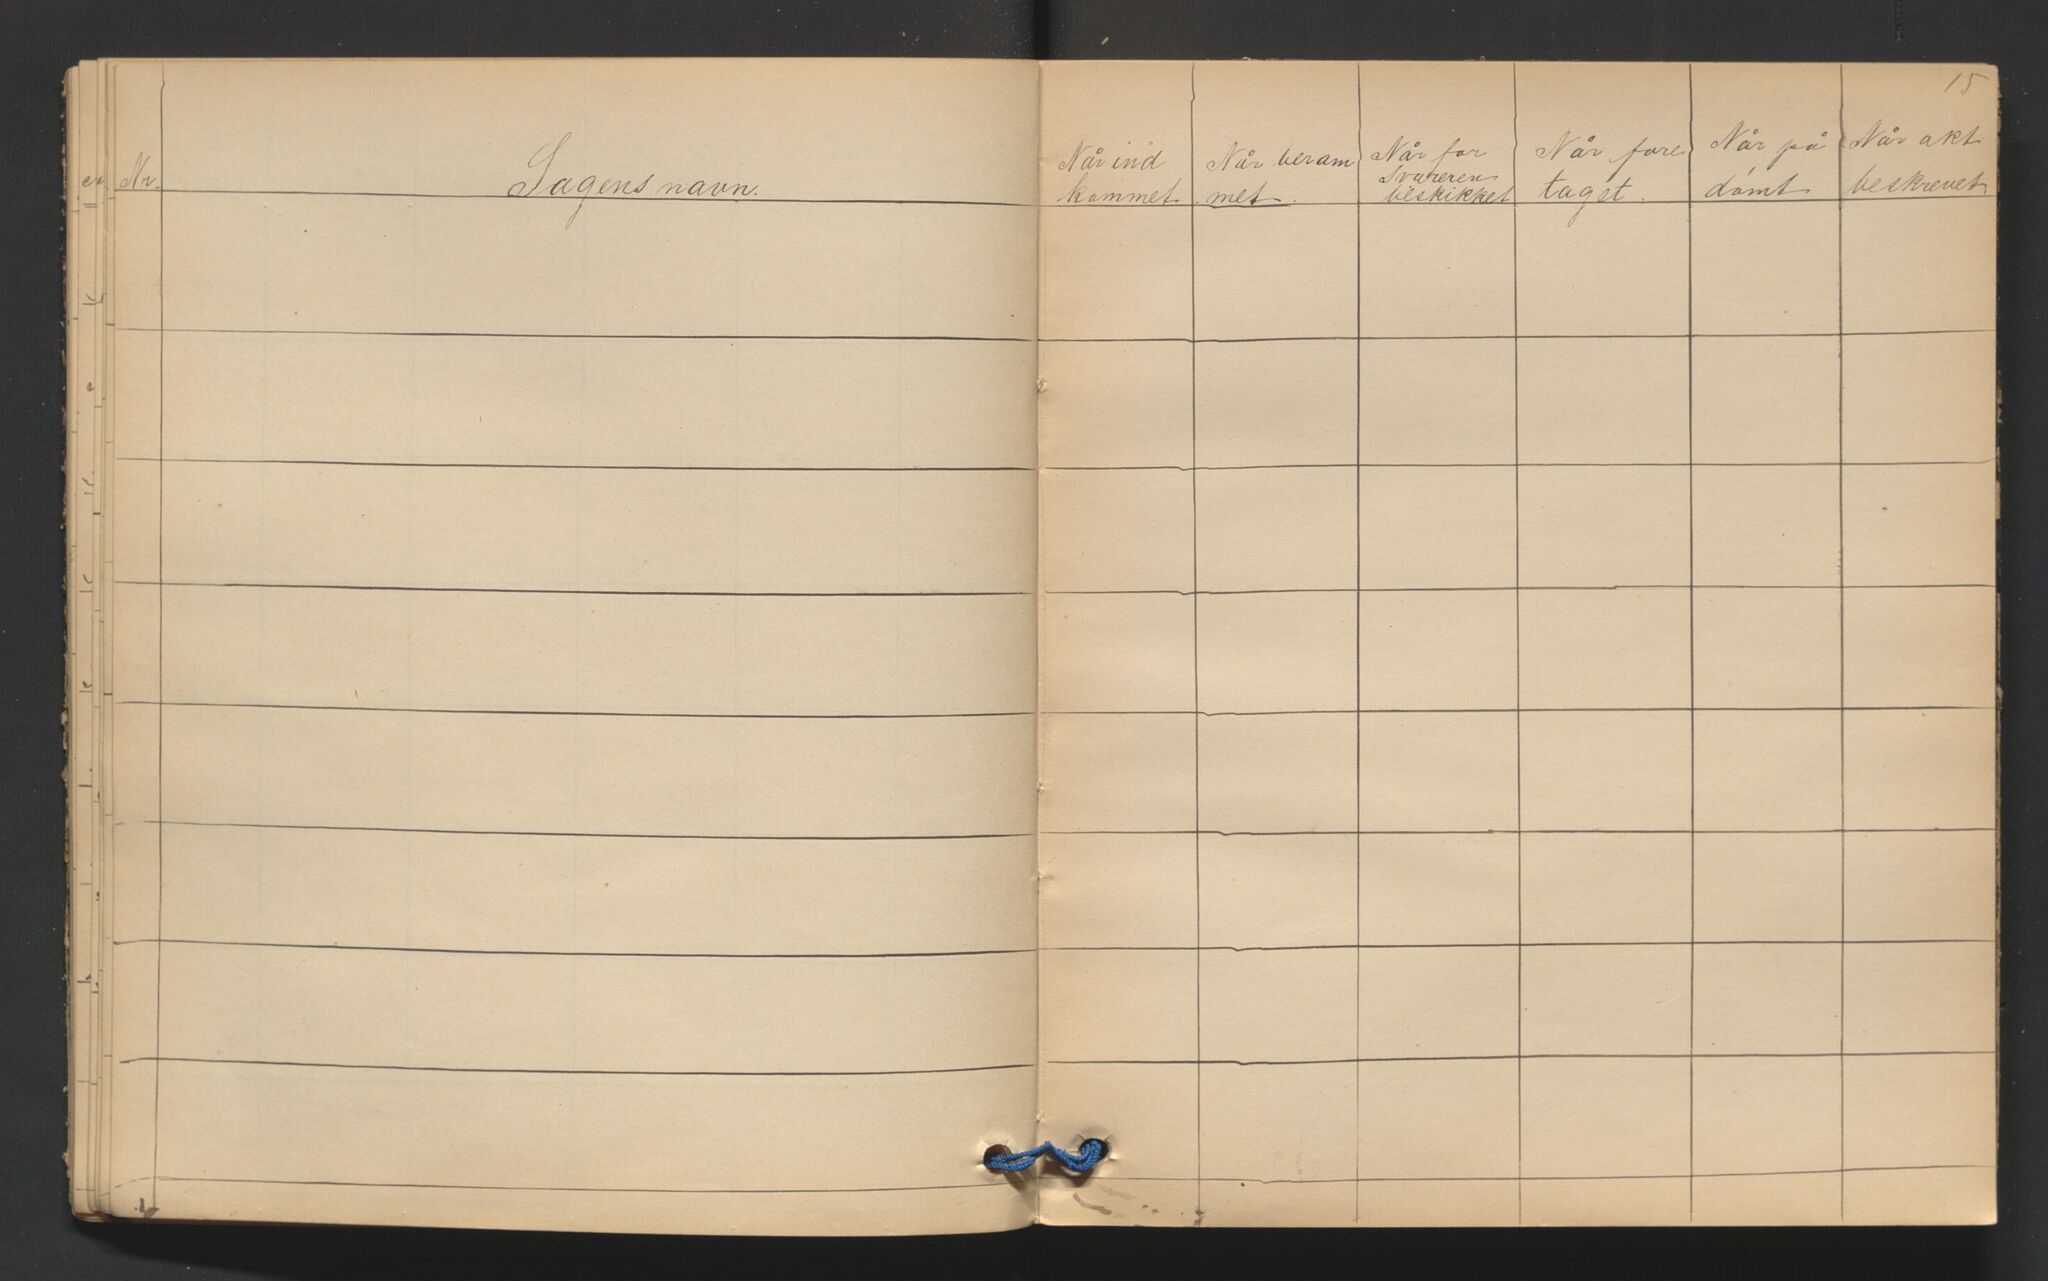 15
Nr.
Sagens navn.
Når ind
kommet
Når beram
met.
Når for
svareren
beskikket
Når fore
taget.
Når på
dømt
Når akt
beskrevet.